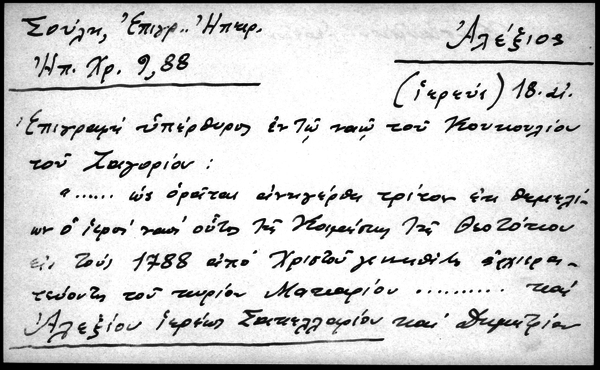 Σούλη, Ἐπιγρ.. Ἠπειρ.
Ἠπ. Χρ. 9,88
Ἀλέξιος
(ἱερεύς) 18. αἰ.
Ἐπιγραφή ὑπέρθυρος ἐν τῷ ναῷ τοῦ Κουκουλίου
τοῦ Ζαγορίου :
"...... ὡς ὁρᾶται ἀνηγέρθη τρίτον ἐκ θεμελί-
ων ὁ ἱερός ναός οὗτος τῆς Κοιμήσεως τῆς Θεοτόκου
εἰς τούς 1788 ἀπό Χριστοῦ γεννηθέντος ἀρχιερα-
τεύοντος τοῦ κυρίου Μακαρίου .......... καί
Ἀλεξίου ἱερέως Σακελλαρίου καί Δημητρίου